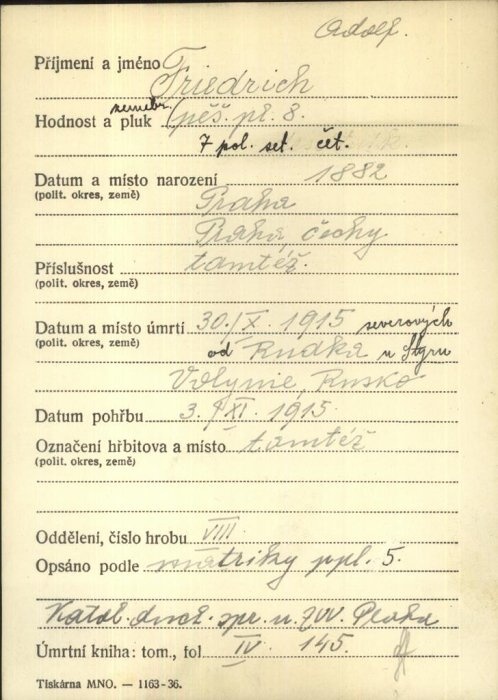 Adolf.
Příjmení a jméno Friedrich
zeměbr.
Hodnost a pluk pěš. pl. 8.
7 pol. set. čet.
Datum a místo narození 1882
(polit. okres, země) Praha
Praha, čechy
Příslušnost tamtéž.
(polit. okres, země)
Datum a místo úmrtí 30./X. 1915 severových
(polit. okres, země) od Rudka u Styru
Volynie, Rusko
Datum pohřbu 3./XI. 1915
Označení hřbitova a místo tamtéž
(polit. okres, země)
Oddělení, číslo hrobu VIII
Opsáno podle matriky ppl. 5.
Katol. duch. spr. u ZVV. Praha
Úmrtní kniha: tom., fol IV. 145.
Tiskárna MNO. — 1163-36.